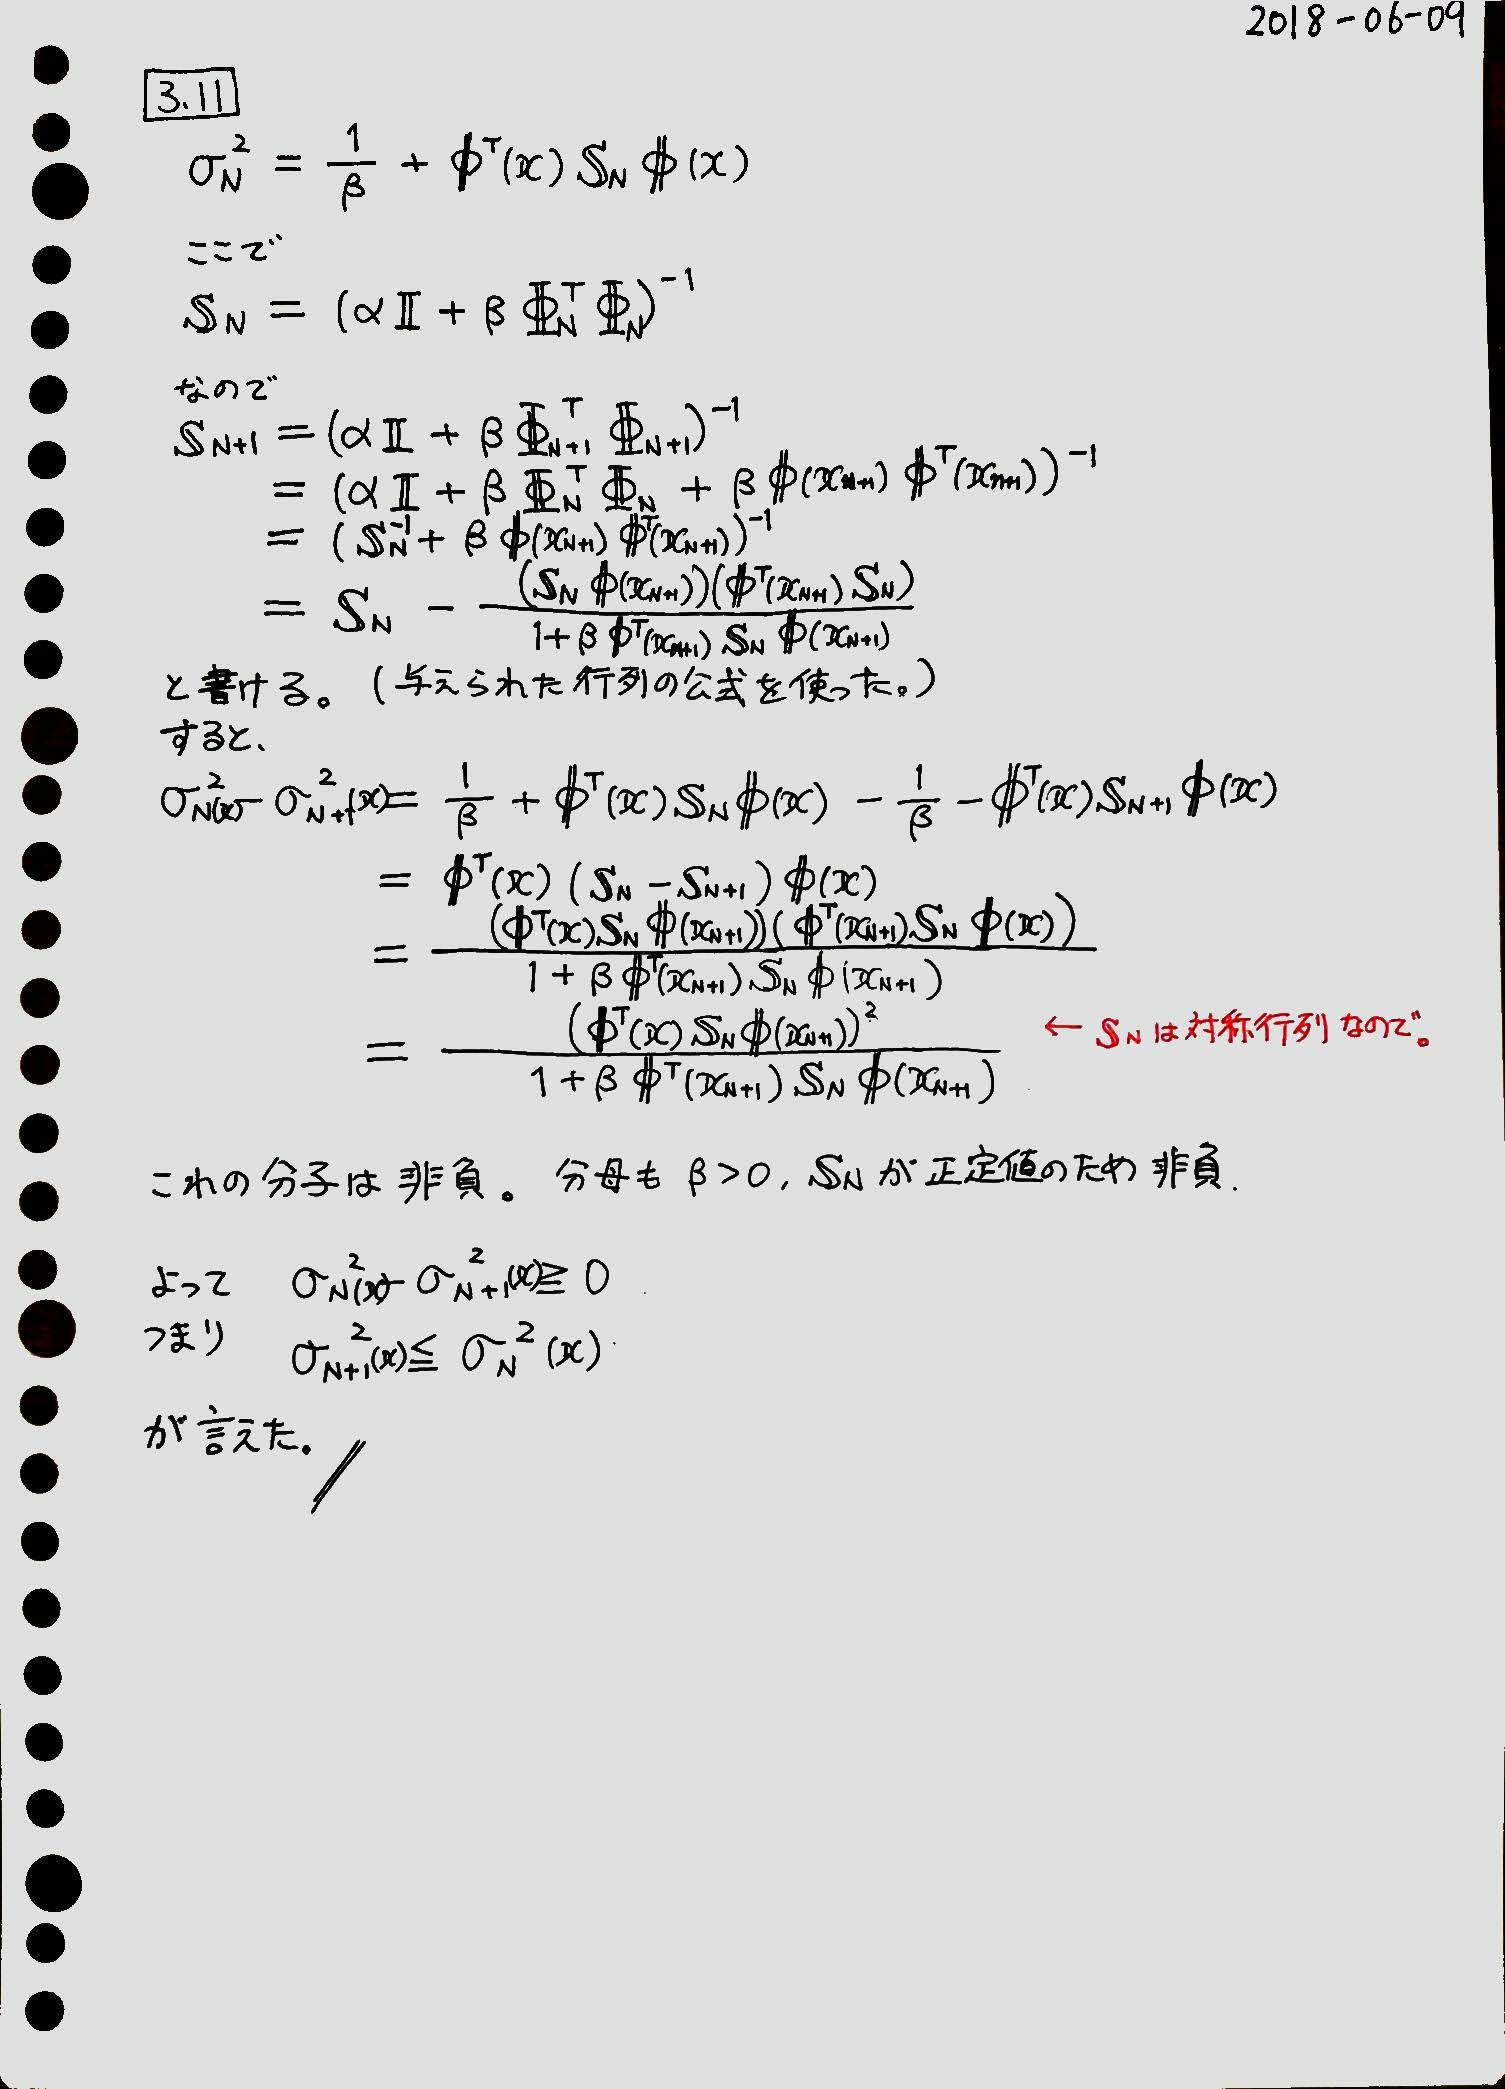 2018-06-09
3.11
σ_N^2 = 1/β + φ^T(x) S_N φ(x)
ここで
S_N = (αI + β Φ_N^T Φ_N)^{-1}
なので
S_{N+1} = (αI + β Φ_{N+1}^T Φ_{N+1})^{-1}
= (αI + β Φ_N^T Φ_N + β φ(x_{N+1}) φ^T(x_{N+1}))^{-1}
= (S_N^{-1} + β φ(x_{N+1}) φ^T(x_{N+1}))^{-1}
= S_N - (S_N φ(x_{N+1}))(φ^T(x_{N+1}) S_N) / 1+β φ^T(x_{N+1}) S_N φ(x_{N+1})
と書ける。(与えられた行列の公式を使った。)
すると、
σ_N^2(x) - σ_{N+1}^2(x) = 1/β + φ^T(x) S_N φ(x) - 1/β - φ^T(x) S_{N+1} φ(x)
= φ^T(x) (S_N - S_{N+1}) φ(x)
= (φ^T(x) S_N φ(x_{N+1}))(φ^T(x_{N+1}) S_N φ(x)) / 1+β φ^T(x_{N+1}) S_N φ(x_{N+1})
= (φ^T(x) S_N φ(x_{N+1}))^2 / 1+β φ^T(x_{N+1}) S_N φ(x_{N+1}) ← S_N は対称行列なので。
これの分子は非負。分母も β>0, S_N が正定値のため非負.
よって σ_N^2(x) - σ_{N+1}^2(x) ≧ 0
つまり σ_{N+1}^2(x) ≦ σ_N^2(x)
が言えた。